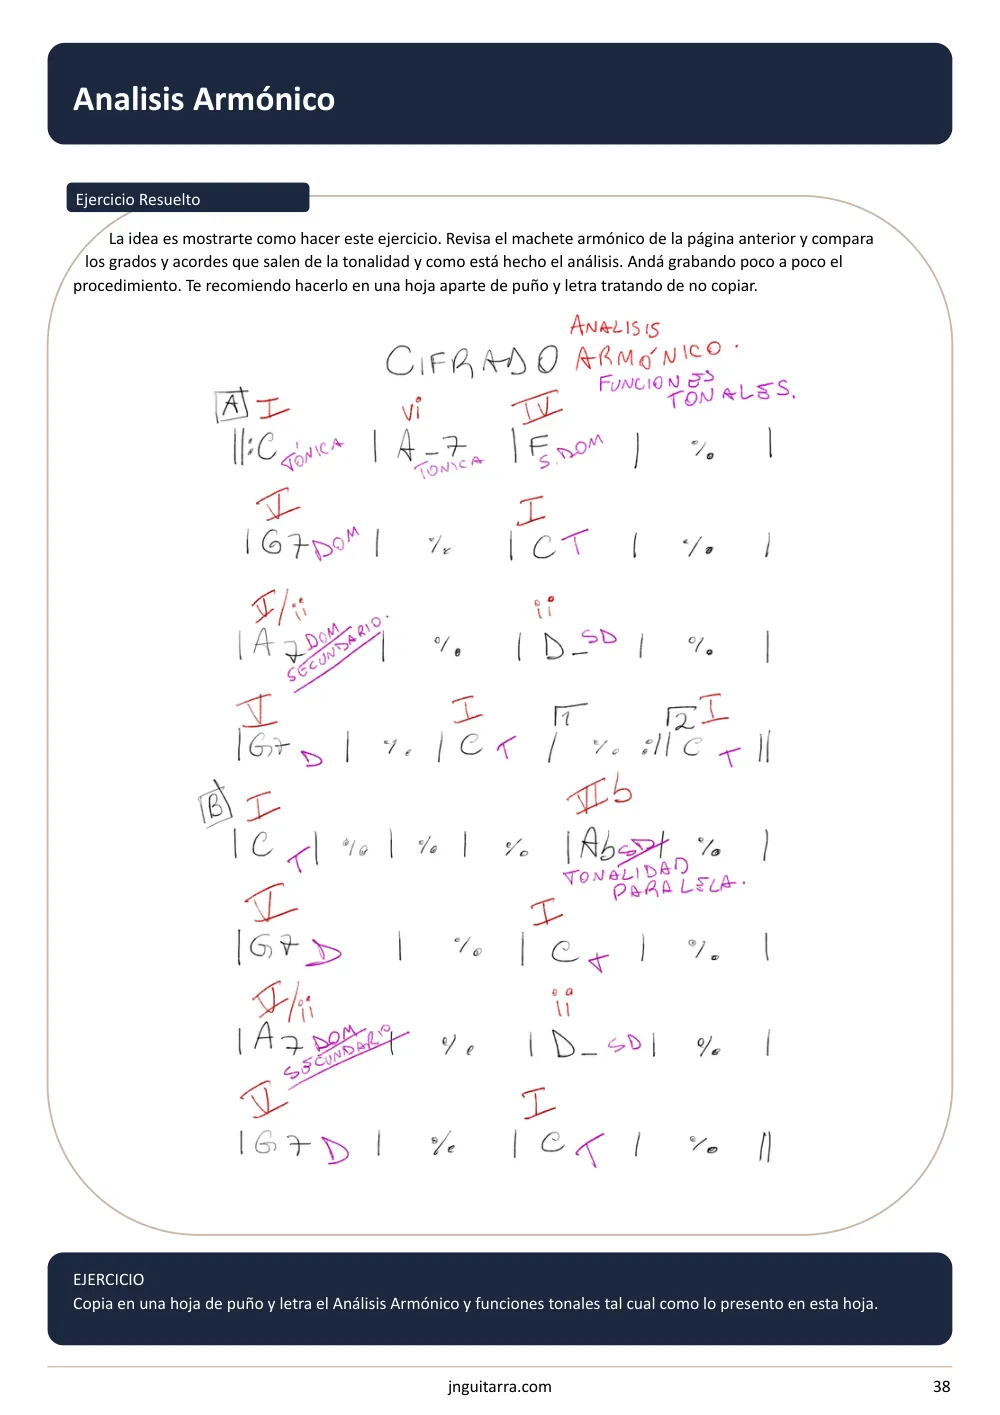 Analisis Armónico
Ejercicio Resuelto
La idea es mostrarte como hacer este ejercicio. Revisa el machete armónico de la página anterior y compara
los grados y acordes que salen de la tonalidad y como está hecho el análisis. Andá grabando poco a poco el
procedimiento. Te recomiendo hacerlo en una hoja aparte de puño y letra tratando de no copiar.
ANALISIS
CIFRADO ARMÓNICO.
FUNCIONES
TONALES.
A I vi IV
||:C TÓNICA | A-7 TONICA | F S.DOM | % |
V I
| G7 DOM | % | C T | % |
V/ii ii
| A7 DOM SECUNDARIO. | % | D- SD | % |
V I 1 2 I
| G7 D | % | C T | % :|| C T ||
B I VIb
| C T | % | % | % | Ab SD | % |
TONALIDAD
PARALELA.
V I
| G7 D | % | C T | % |
V/ii ii
| A7 DOM SECUNDARIO | % | D- SD | % |
V I
| G7 D | % | C T | % ||
EJERCICIO
Copia en una hoja de puño y letra el Análisis Armónico y funciones tonales tal cual como lo presento en esta hoja.
jnguitarra.com 38